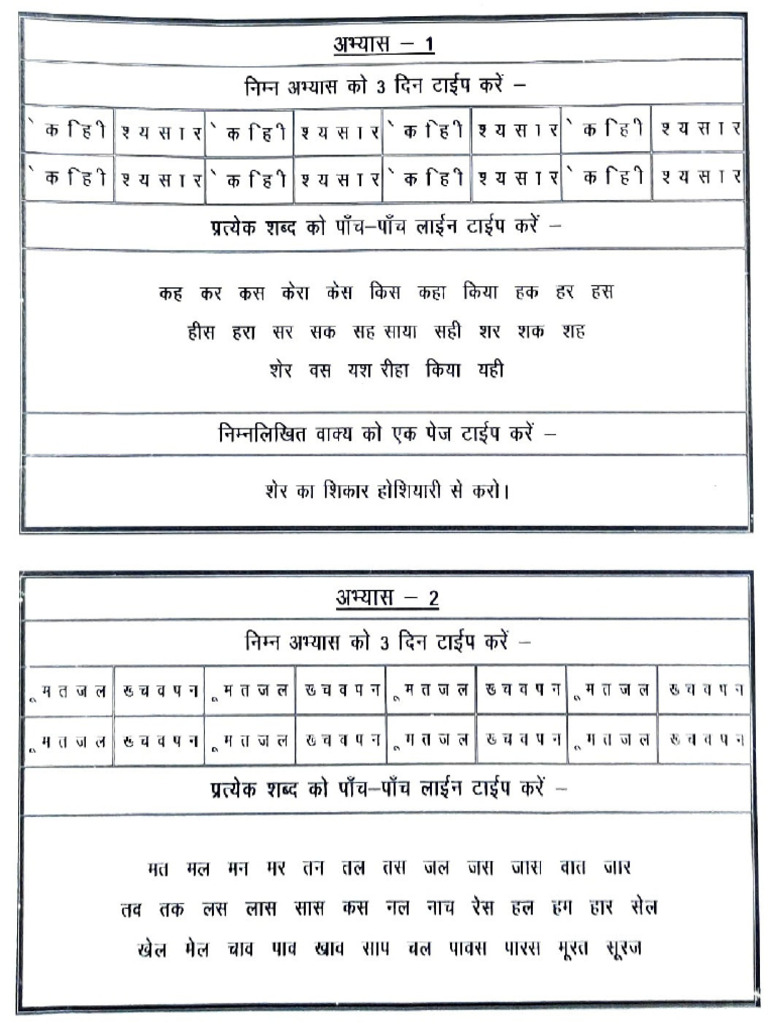 अभ्यास – 1
निम्न अभ्यास को 3 दिन टाईप करें –
े क ि ह ी श् य स ा र े क ि ह ी श् य स ा र े क ि ह ी श् य स ा र े क ि ह ी श् य स ा र
े क ि ह ी श् य स ा र े क ि ह ी श् य स ा र े क ि ह ी श् य स ा र े क ि ह ी श् य स ा र
प्रत्येक शब्द को पाँच–पाँच लाईन टाईप करें –
कह कर कस केरा केस किस कहा किया हक हर हस
हीस हरा सर सक सह साया सही शर शक शह
शेर वस यश रीहा किया यही
निम्नलिखित वाक्य को एक पेज टाईप करें –
शेर का शिकार होशियारी से करो।
अभ्यास – 2
निम्न अभ्यास को 3 दिन टाईप करें –
ू म त ज ल ख् च व प न ू म त ज ल ख् च व प न ू म त ज ल ख् च व प न ू म त ज ल ख् च व प न
ू म त ज ल ख् च व प न ू म त ज ल ख् च व प न ू म त ज ल ख् च व प न ू म त ज ल ख् च व प न
प्रत्येक शब्द को पाँच–पाँच लाईन टाईप करें –
मत मल मन मर तन तल तस जल जस जास वात जार
तव तक लस लास सास कस नल नाच रेस हल हग हार सेल
खेल मेल चाव पाव खाव चल पावस पारस मूरत सूरज